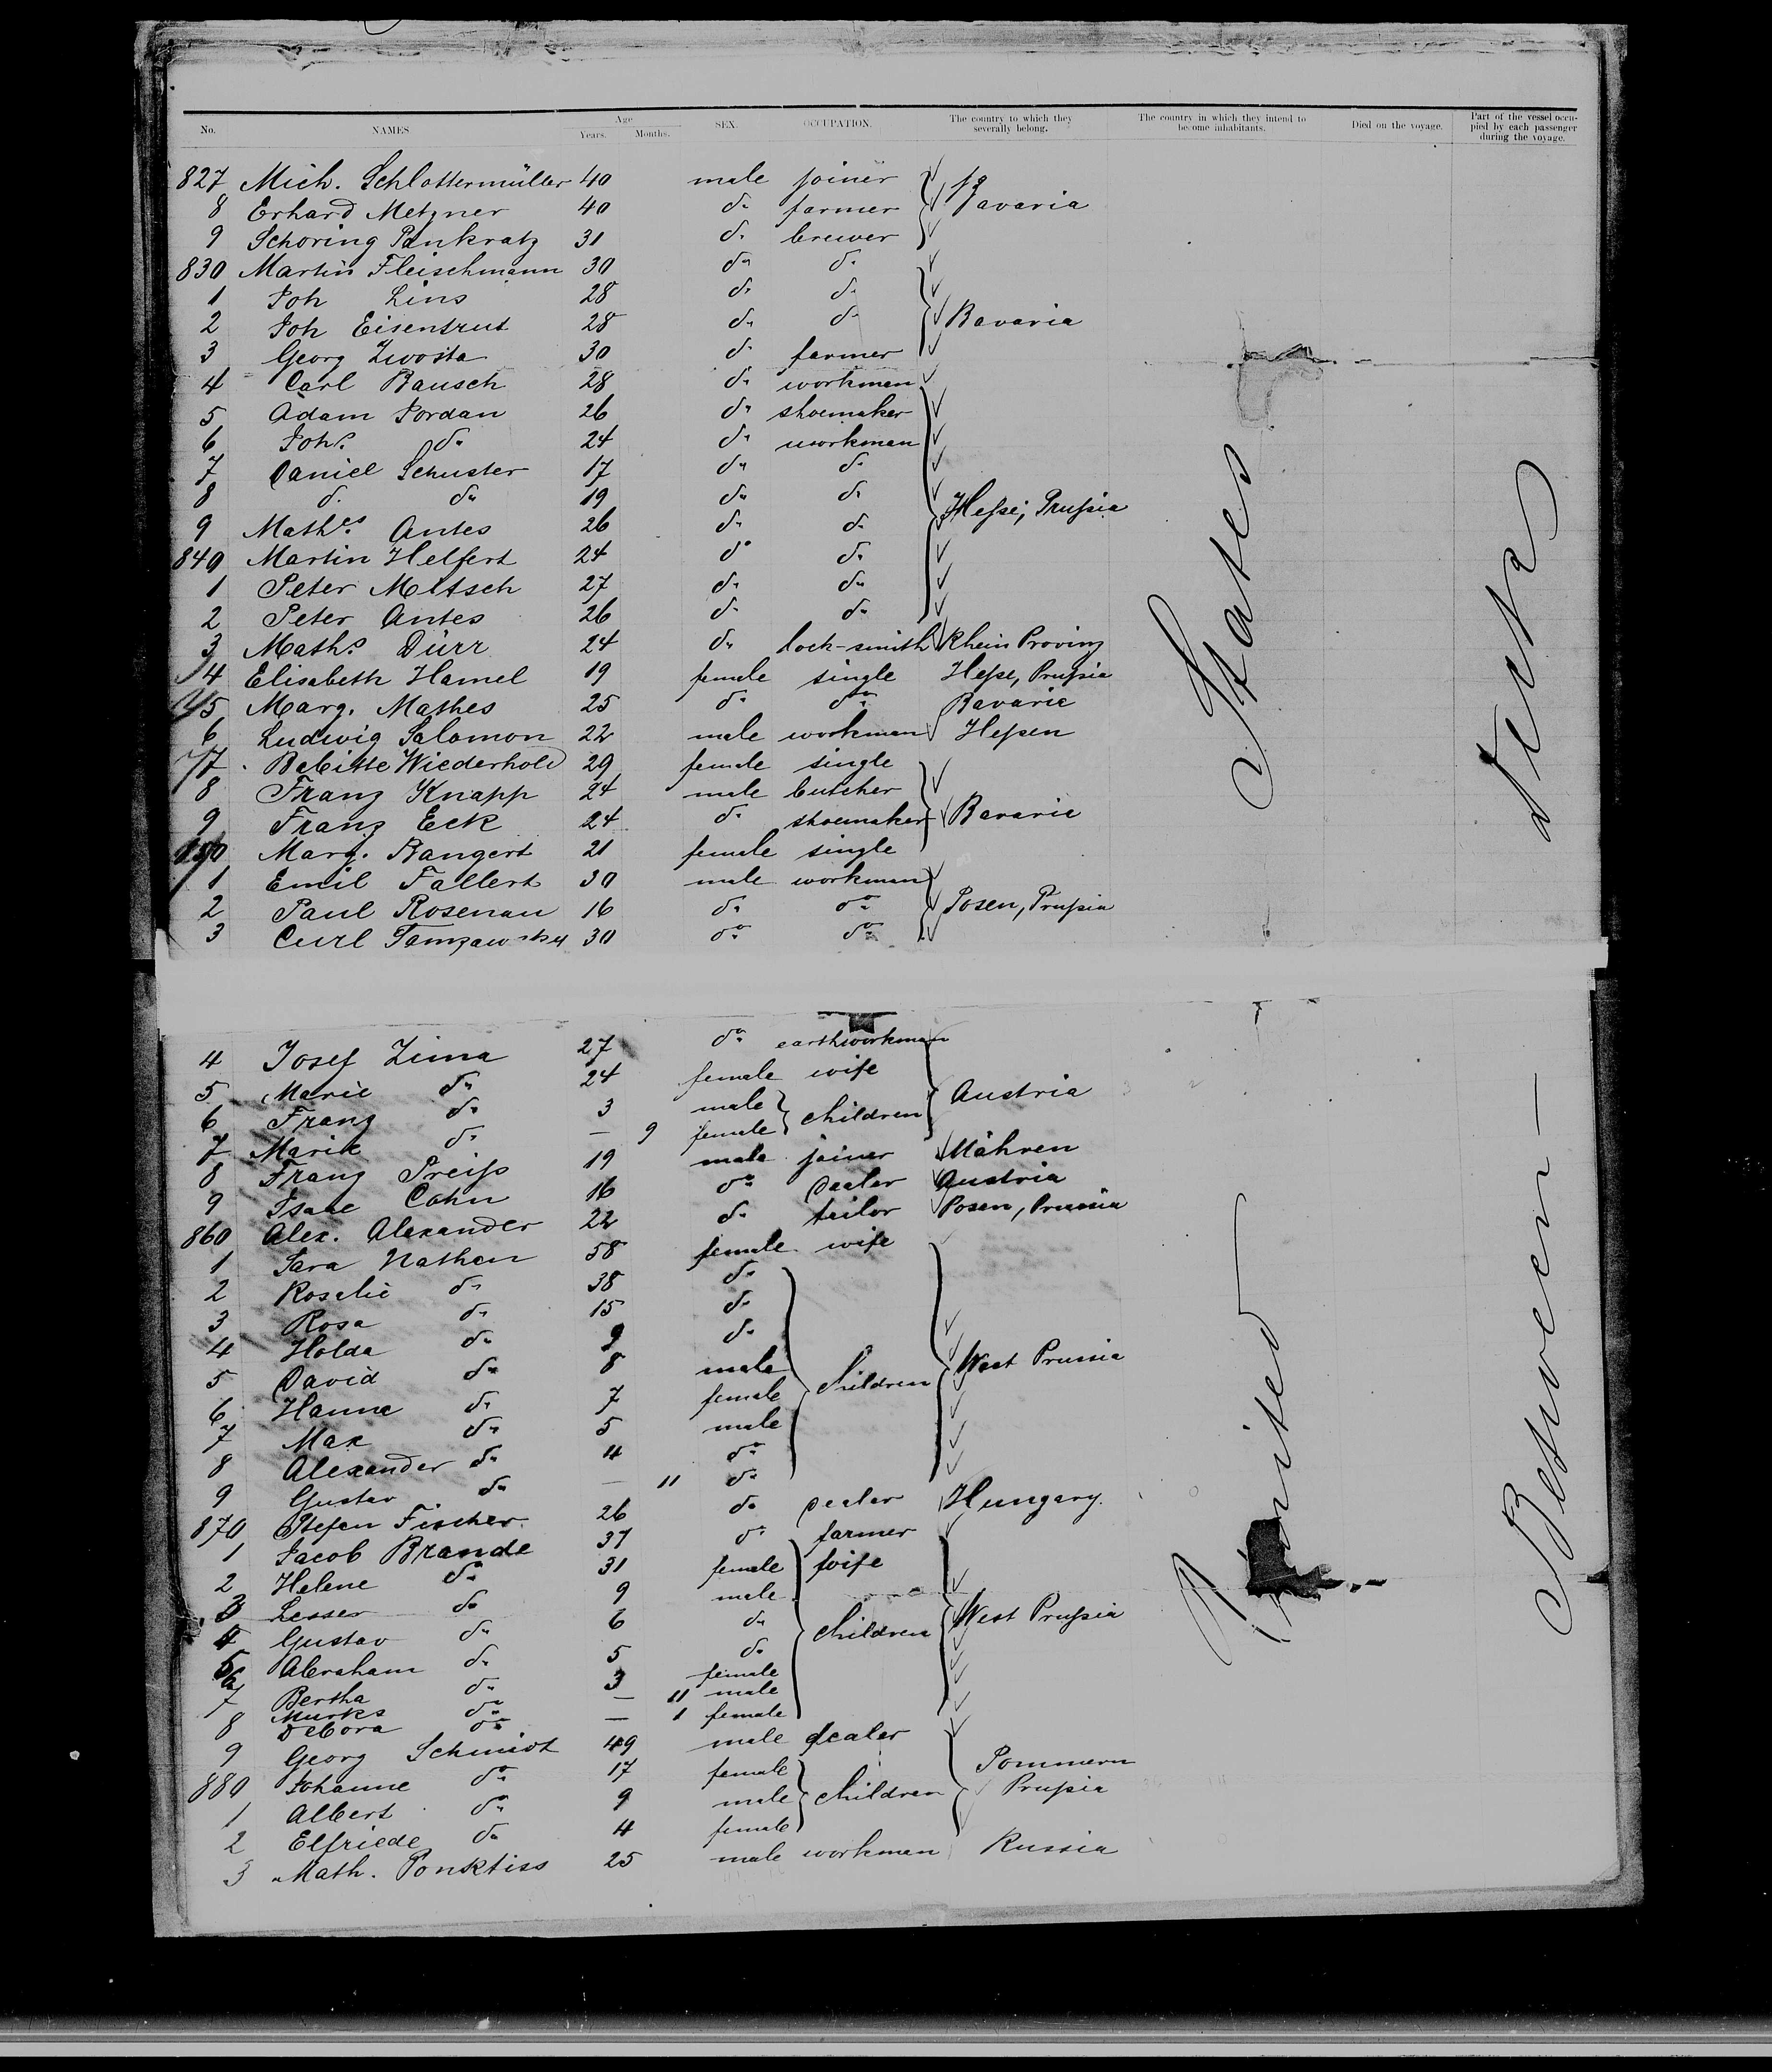 No. NAMES Age Years. Months. SEX. OCCUPATION. The country to which they severally belong. The country in which they intend to become inhabitants. Died on the voyage. Part of the vessel occupied by each passenger during the voyage.
827 Mich. Schlottermüller 40 male joiner
8 Erhard Metzner 40 do farmer Bavaria
9 Schoring Pankratz 31 do brewer
830 Martin Fleischmann 30 do do
1 Joh Lins 28 do do
2 Joh Eisentrut 28 do do Bavaria
3 Georg Zwosta 30 do farmer
4 Carl Bausch 28 do workman
5 Adam Jordan 26 do shoemaker
6 Johs. do 24 do workman
7 Daniel Schuster 17 do do
8 do do 19 do do Hesse, Prussia
9 Mathes Antes 26 do do
840 Martin Helfert 24 do do
1 Peter Metsch 27 do do
2 Peter Antes 26 do do
3 Maths. Dürr 24 do lock-smith Rhein Provinz
4 Elisabeth Hamel 19 female single Hesse, Prussia
5 Marg. Mathes 25 do do Bavaria
6 Ludwig Salomon 22 male workman Hessen
7 Babitte Wiederhold 29 female single
8 Franz Knapp 24 male butcher
9 Franz Eck 24 do shoemaker Bavaria
850 Marg. Bangert 21 female single
1 Emil Fallert 30 male workman
2 Paul Rosenau 16 do do Posen, Prussia
3 Carl 30 do do
4 Josef Zima 27 do earthworkman
5 Marie do 24 female wife Austria
6 Franz do 3 male children
7 Marie do — 9 female
8 Franz Preiss 19 male joiner Mähren
9 Isaac Cohn 16 do dealer Austria
860 Alex. Alexander 22 do tailor Posen, Prussia
1 Sara Nathan 58 female wife
2 Rosalie do 38 do
3 Rosa do 15 do
4 Holda do 9 do
5 David do 8 male children West Prussia
6 Hanna do 7 female
7 Max do 5 male
8 Alexander do 4 do
9 Gustav do — 11 do
870 Stefan Fischer 26 do dealer Hungary
1 Jacob Brande 37 do farmer
2 Helene do 31 female wife
3 Lesser do 9 male
4 Gustav do 6 do children West Prussia
5 Abraham do 5 do
6 Bertha do 3 female
7 Marks do — 11 male
8 Debora do — 1 female
9 Georg Schmidt 49 male dealer
880 Johanne do 17 female Pommern
1 Albert do 9 male children Prussia
2 Elfriede do 4 female
3 Math. Ponktiss 25 male workman Russia
United States
Between Decks